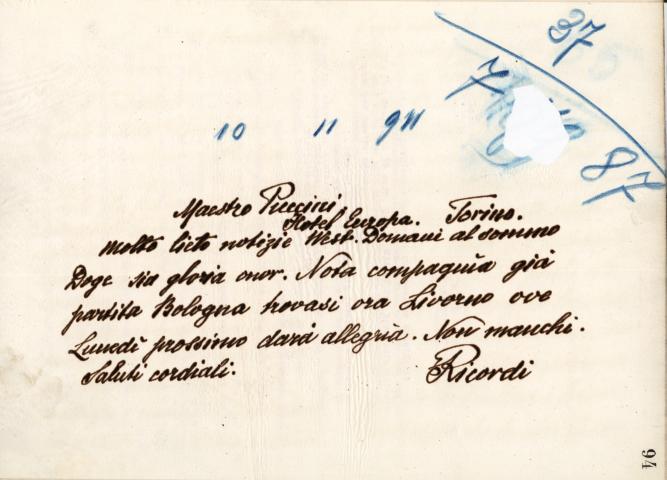 37
7
10 11 911
87
Maestro Puccini.
Hotel Europa. Torino.
Molto lieto notizie West. Domani al sommo
Doge sia gloria onor. Nota compagnia già
partita Bologna trovasi ora Livorno ove
Lunedì prossimo darà allegria. Non manchi.
Saluti cordiali. Ricordi
94